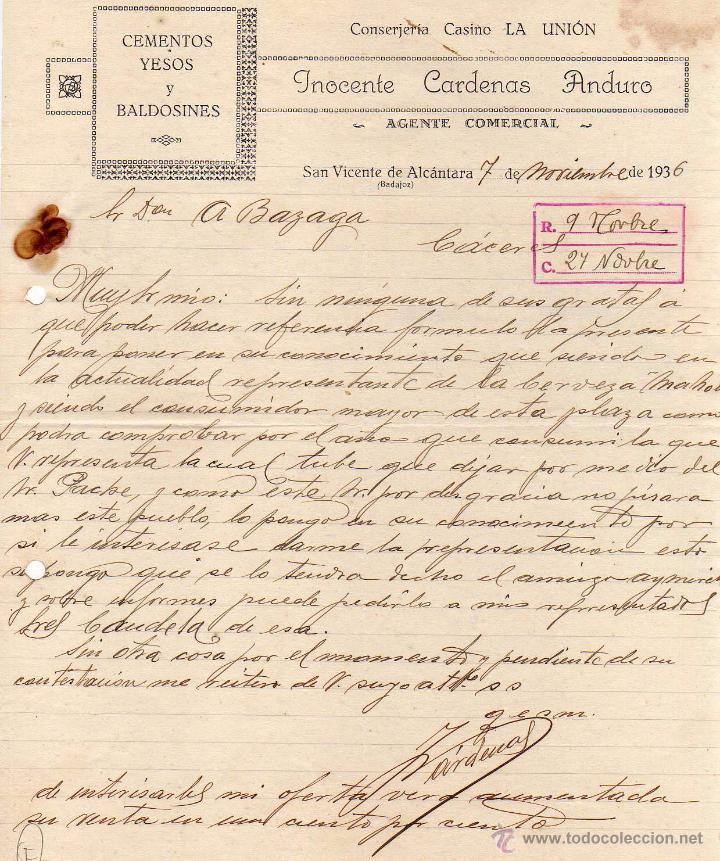 CEMENTOS
YESOS
y
BALDOSINES
Conserjería Casino LA UNIÓN
Inocente Cardenas Anduro
AGENTE COMERCIAL
San Vicente de Alcántara 7 de Noviembre de 1936
(Badajoz)
Sr Don A Bazaga
Cáceres
R. 9 Novbre
C. 27 Novbre
Muy Sr mio: Sin ninguna de sus gratas á
que poder hacer referencia formulo la presente
para poner en su conocimiento que siendo en
la actualidad representante de la Cerveza Mahou
y siendo el consumidor mayor de esta plaza como
podra comprobar por el año que consumi la que
V. representa la cual tube que dijar por medio del
Sr. Packe, y como este Sr. por desgracia no pisara
mas este pueblo, lo pongo en su conocimiento por
si le interesase darme la representacion esto
supongo que se lo tendra dicho el amigo
y sobre informes puede pedirlo a mis representados
Sres Candela, de esa.
Sin otra cosa por el momento y pendiente de su
contestación me reitero de V. suyo atto s s
q e s m.
Cárdenas
de interisarles mi oferta vera aumentada
su venta en un ciento por ciento
www.todocoleccion.net